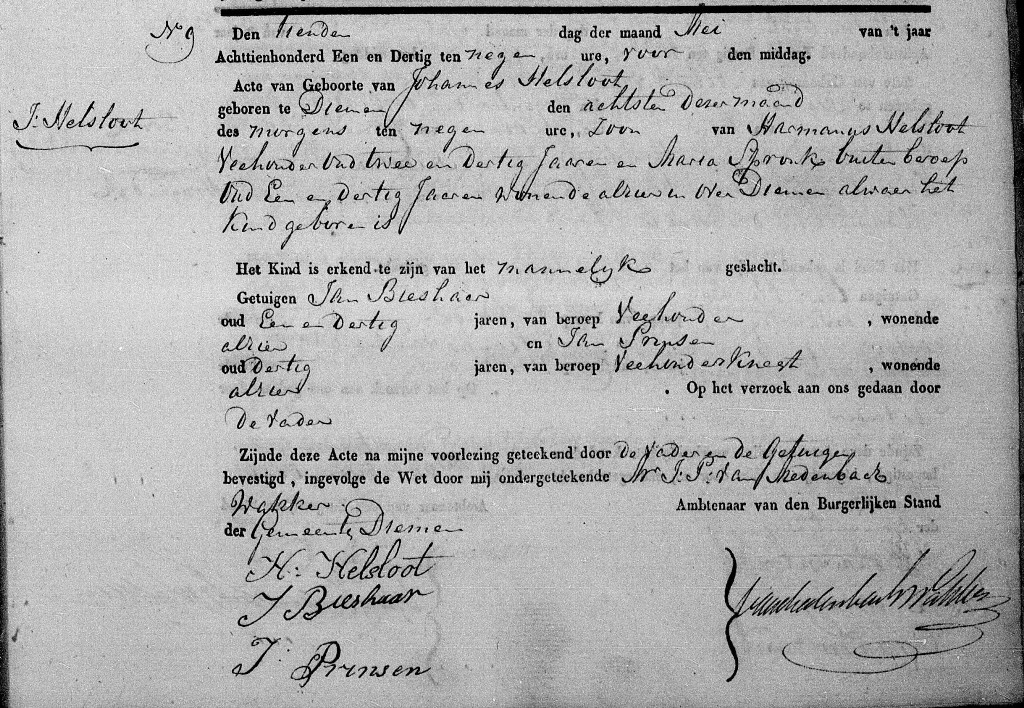 No 9
Den tienden dag der maand Mei van 't jaar
Achttienhonderd Een en Dertig ten negen ure, voor den middag.
Acte van Geboorte van Johannes Helsloot
J: Helsloot
geboren te Diemen den achtsten dezer maand
des morgens ten negen ure, Zoon van Harmanus Helsloot
Veehouder oud twee en dertig Jaaren en Maria Spronk buiten beroep
Oud Een en dertig Jaaren wonende alhier in over Diemen alwaer het
Kind geboren is
Het Kind is erkend te zijn van het mannelyk geslacht.
Getuigen Jan Bieshaar
oud Een en Dertig jaren, van beroep Veehouder, wonende
alhier en Jan Prinsen
oud Dertig jaren, van beroep Veehouder Knegt, wonende
alhier. Op het verzoek aan ons gedaan door
De Vader
Zijnde deze Acte na mijne voorlezing geteekend door de Vader en de Getuigen
bevestigd, ingevolge de Wet door mij ondergeteekende Mr J: P: van Medenbach
Wakker Ambtenaar van den Burgerlijken Stand
der Gemeente Diemen
H: Helsloot
J Bieshaar
van Medenbach Wakker
J: Prinsen